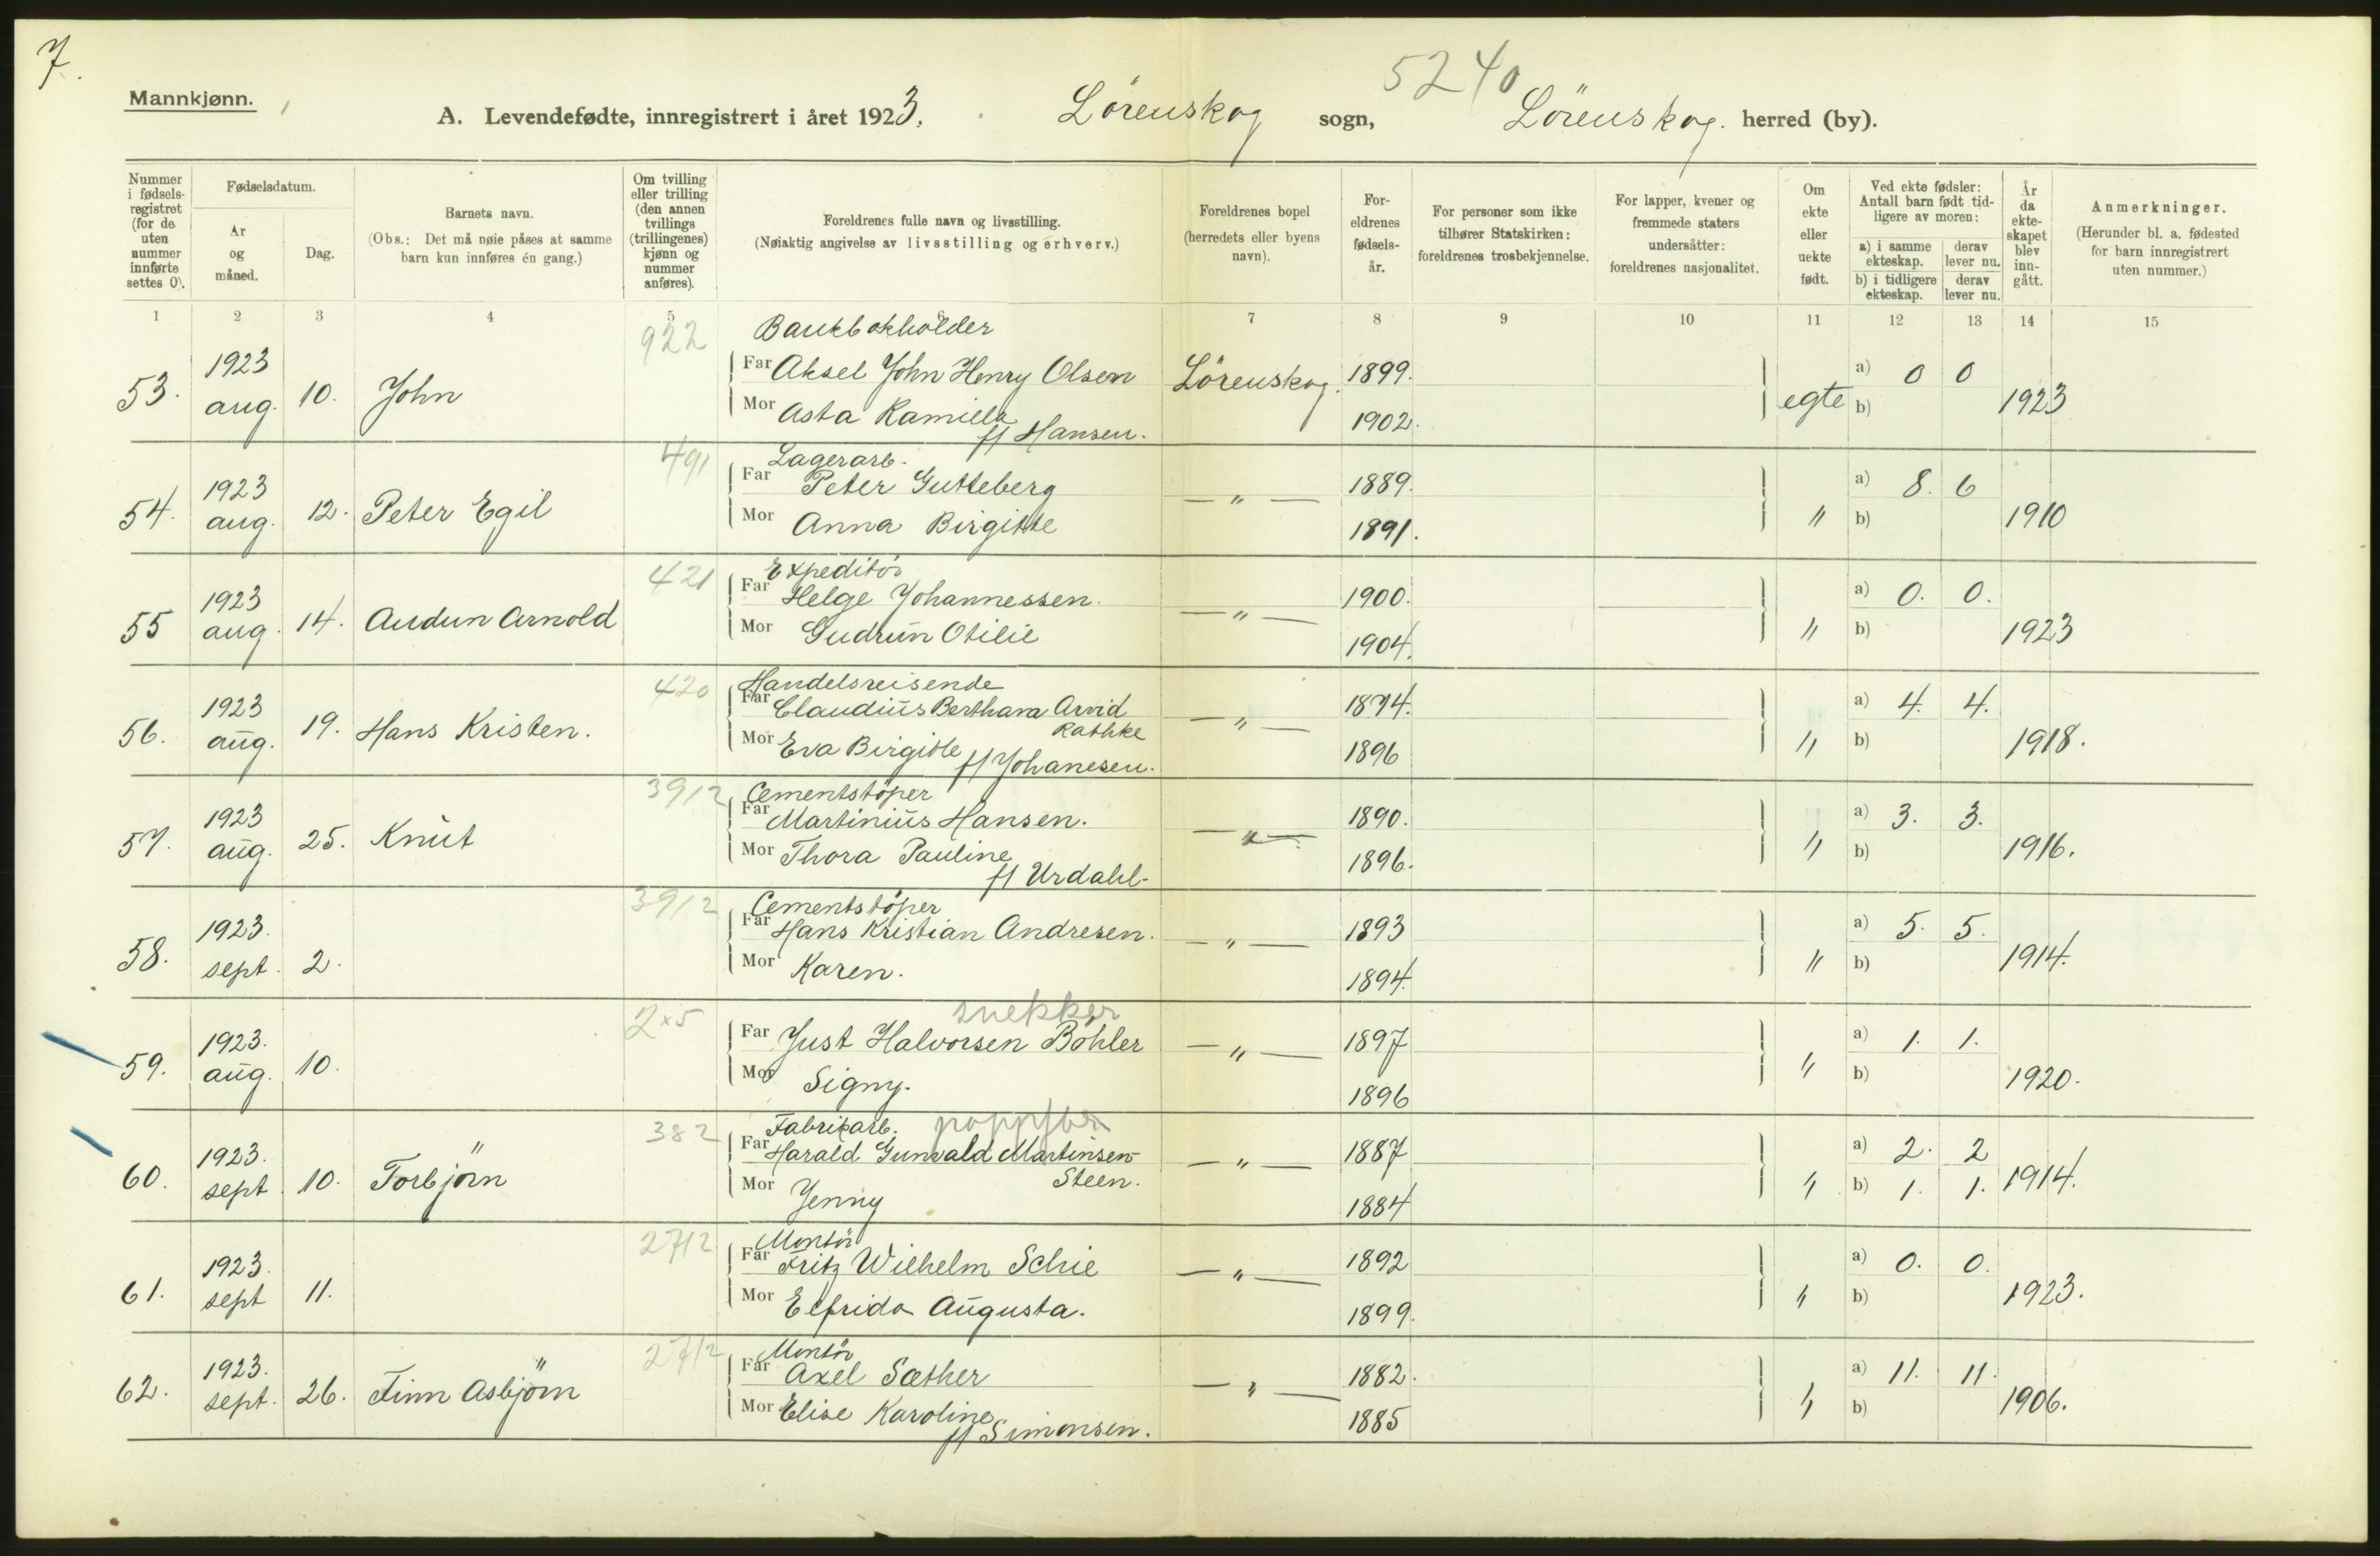 7.
Mannkjønn.
5240
A. Levendefødte, innregistrert i året 1923. Lörenskog sogn, Lörenskog. herred (by).
Nummer i fødsels-registret (for de uten nummer innførte settes 0).
Fødselsdatum.
År og måned.
Dag.
Barnets navn.
(Obs.: Det må nøie påses at samme barn kun innføres én gang.)
Om tvilling eller trilling (den annen tvillings (trillingenes) kjønn og nummer anføres).
Foreldrenes fulle navn og livsstilling.
(Nøiaktig angivelse av livsstilling og erhverv.)
Foreldrenes bopel (herredets eller byens navn).
For-eldrenes fødsels-år.
For personer som ikke tilhører Statskirken: foreldrenes trosbekjennelse.
For lapper, kvener og fremmede staters undersåtter: foreldrenes nasjonalitet.
Om ekte eller uekte født.
Ved ekte fødsler: Antall barn født tid-ligere av moren:
a) i samme ekteskap. derav lever nu.
b) i tidligere ekteskap. derav lever nu.
År da ekte-skapet blev inn-gått.
Anmerkninger.
(Herunder bl. a. fødested for barn innregistrert uten nummer.)
1 2 3 4 5 6 7 8 9 10 11 12 13 14 15
922 Bankbokholder
53. 1923 aug. 10. John Far Aksel John Henry Olsen Lörenskog. 1899. egte a) 0 0 1923
Mor Asta Kamilla f/ Hansen. 1902. b)
491 Lagerarb.
54. 1923 aug. 12. Peter Egil Far Peter Gutteberg — " — 1889. " a) 8. 6 1910
Mor Anna Birgitte 1891. b)
421 Expeditör
55 1923 aug. 14. Audun Arnold Far Helge Johannessen. — " — 1900. " a) 0. 0. 1923
Mor Gudrun Otilie 1904. b)
420 Handelsreisende
56. 1923 aug. 19. Hans Kristen. Far Claudius Berthara Arvid Rathke — " — 1894. " a) 4. 4. 1918.
Mor Eva Birgitte f/ Johanesen. 1896 b)
3912 Cementstöper
57. 1923 aug. 25. Knut Far Martinius Hansen. — " — 1890. " a) 3. 3. 1916.
Mor Thora Pauline f/ Urdahl. 1896. b)
3912 Cementstöper
58. 1923. sept. 2. Far Hans Kristian Andresen. — " — 1893 " a) 5. 5. 1914.
Mor Karen. 1894. b)
2×5 snekker
59. 1923. aug. 10. Far Just Halvorsen Böhler — " — 1897 " a) 1. 1. 1920.
Mor Signy. 1896 b)
382 Fabrikarb.
60. 1923. sept. 10. Torbjörn Far Harald Gunvald Martinsen Steen. — " — 1887 " a) 2. 2 1914.
Mor Jenny 1884 b) 1. 1.
2712 Montör
61. 1923. sept 11. Far Fritz Wilhelm Schie — " — 1892 " a) 0. 0. 1923.
Mor Elfrida Augusta. 1899. b)
2712 Montör
62. 1923. sept. 26. Finn Asbjörn Far Axel Sæther — " — 1882. " a) 11. 11. 1906.
Mor Elise Karoline f/ Simonsen. 1885 b)